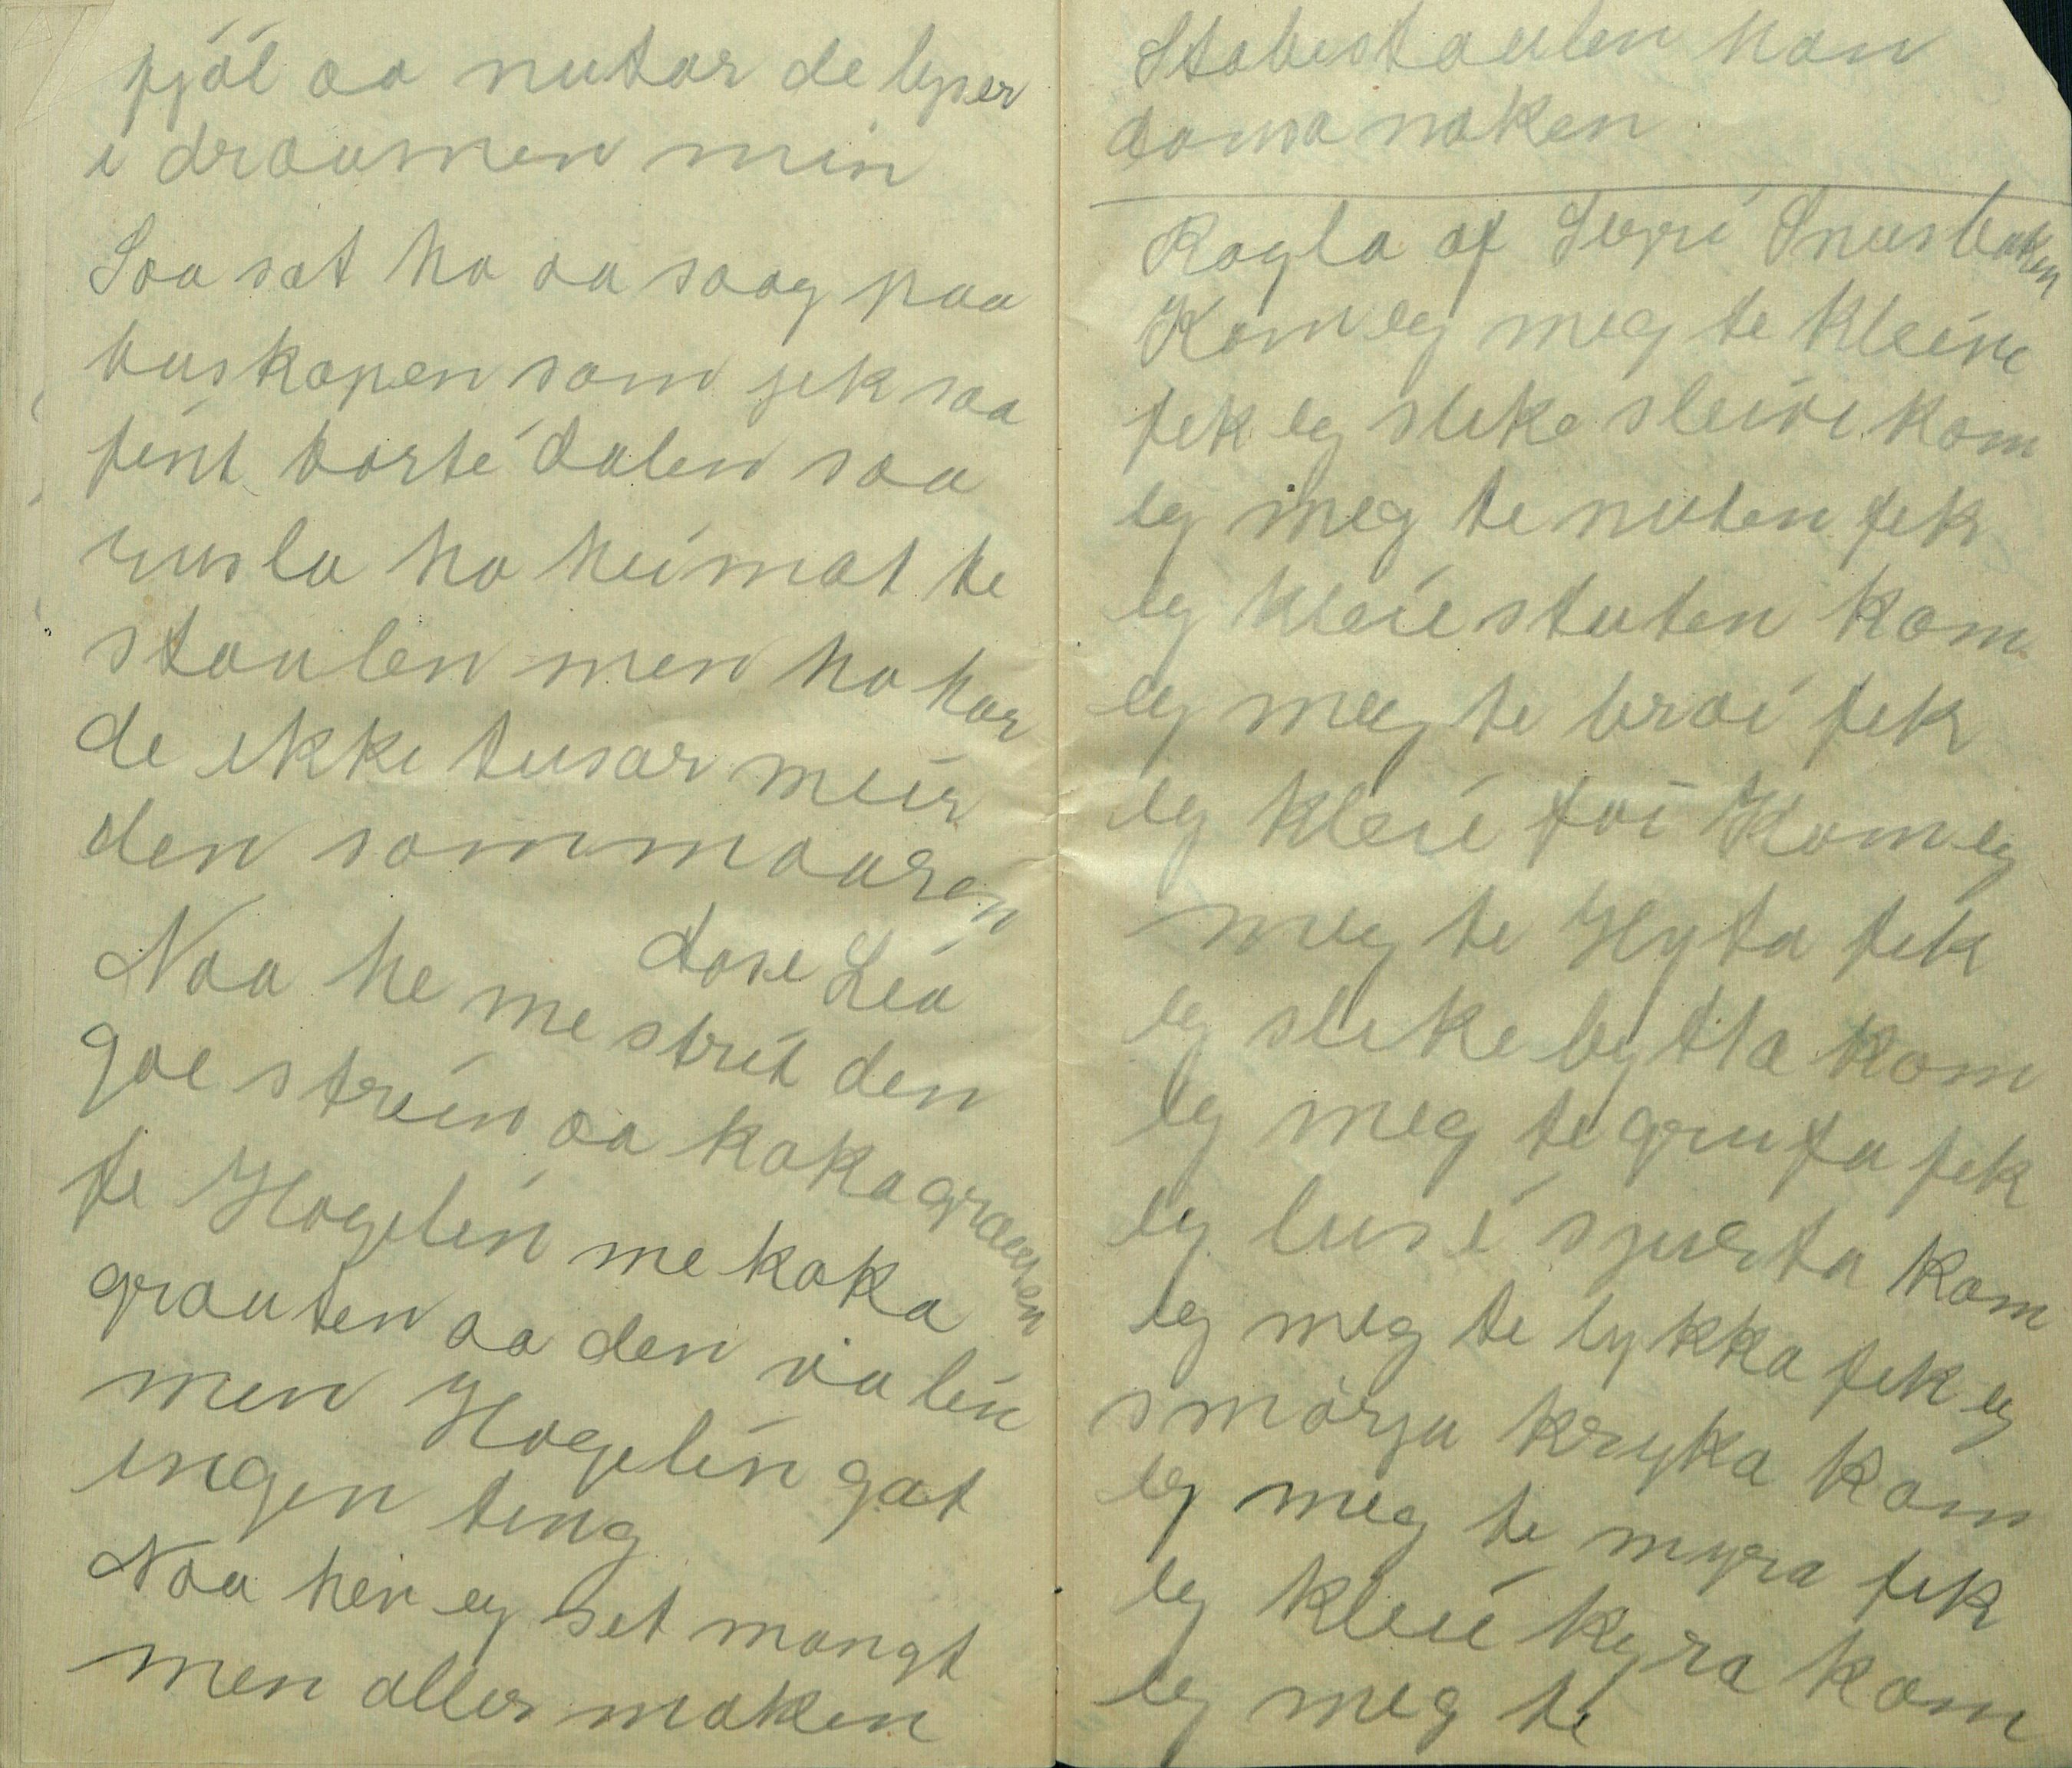 fjöl aa nutar de lyser
i draumen min
Saa sat ho aa saag paa
buskapen som jek saa
fint borti dalen saa
rusla ho heimat te
staulen men ho har
de ikke tusar meir
den sommaaren
dose Lea
Naa he me strit den
goe strein aa kakagrauten
te Hogelin me kaka
grauten aa den va lin
men Hogelin gat
ingen ting
Naa hen eg set mangt
men aller maken
Stabestaulen han
dansa naken
Rogla af Syri Snusbaken
Kom eg meg te kleive
fek eg sleke sleivi kom
eg meg te nuten fek
eg kleie stuten kom
eg meg te broi fek
eg kleie foi Kom eg
meg te Hyta fek
eg sleke bytta kom
eg meg te grufa fek
eg lus i sjurta kom
eg meg te lykka fek eg
smörja krykka kom
eg meg te myra fek
eg kleie kyra kom
eg meg te